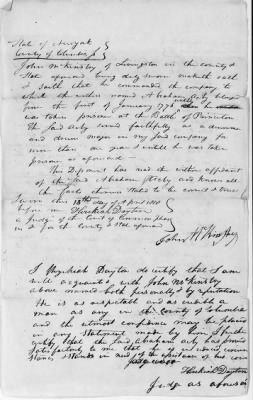 State of New York
County of Columbia
John McKinstry of Livingston in the county &
State aforesaid being duly sworn maketh oath
& saith that he commanded the company to
which the within named Abraham
from the first of January 1776 until he
was taken prisoner at the Battle of
The said served faithfully as a drummer
and drum major in my said company for
more than a year & until he was taken
prisoner as aforesaid —
This Deponent has read the within affidavit
of the said Abraham and knows all
the facts therein stated to be correct & true
Sworn this 13th day of April 1818
before me Hezekiah Dayton
a judge of the Court of Common Pleas
in & for the county & state aforesaid
John McKinstry
I Hezekiah Dayton do certify that I am
well acquainted with John McKinstry
above named both personally & by reputation
He is as respectable and as credible a
man as any in the county of Columbia
and the utmost confidence may be placed
in any statement made by him I further
certify that the said Abraham has proved
satisfactorily to me that he is in
Hezekiah Dayton
Judge as aforesaid